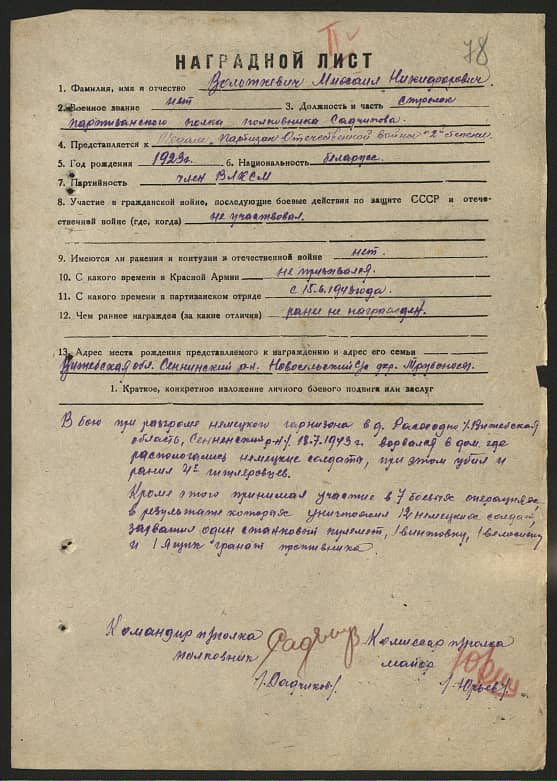 78
НАГРАДНОЙ ЛИСТ
1. Фамилия, имя и отчество Воложкевич Михаил Никифорович.
2. Военное звание нет 3. Должность и часть стрелок
партизанского полка полковника Садчикова.
4. Представляется к Медали "Партизан Отечественной войны" 2ой степени
5. Год рождения 1923г. 6. Национальность беларусс.
7. Партийность член ВЛКСМ
8. Участие в гражданской войне, последующие боевые действия по защите СССР и отече-
ственной войне (где, когда) не участвовал.
9. Имеются ли ранения и контузии в отечественной войне нет.
10. С какого времени в Красной Армии не призывался.
11. С какого времени в партизанском отряде с 15.6.1943 года.
12. Чем раннее награжден (за какие отличия) ранее не награжден.
13. Адрес места рождения представляемого к награждению и адрес его семьи
Витебская обл. Сеннинский р-н. Новосельский с/с дер.
1. Краткое, конкретное изложение личного боевого подвига или заслуг
В бою при разгроме немецкого гарнизона в д. /Витебская
область, Сенненский р-н/ 18.7.1943г. ворвался в дом, где
распологались немецкие солдаты, при этом убил и
ранил 4х гитлеровцев.
Кроме этого принимал участие в 7 боевых операциях
в результате которых уничтожил 12 немецких солдат
захватил один станковый пулемет, 1 винтовку, 1 велосипед
и 1 ящик гранат противника.
Командир полка Комиссар полка
полковник майор
/Садчиков/ /Юрьев/